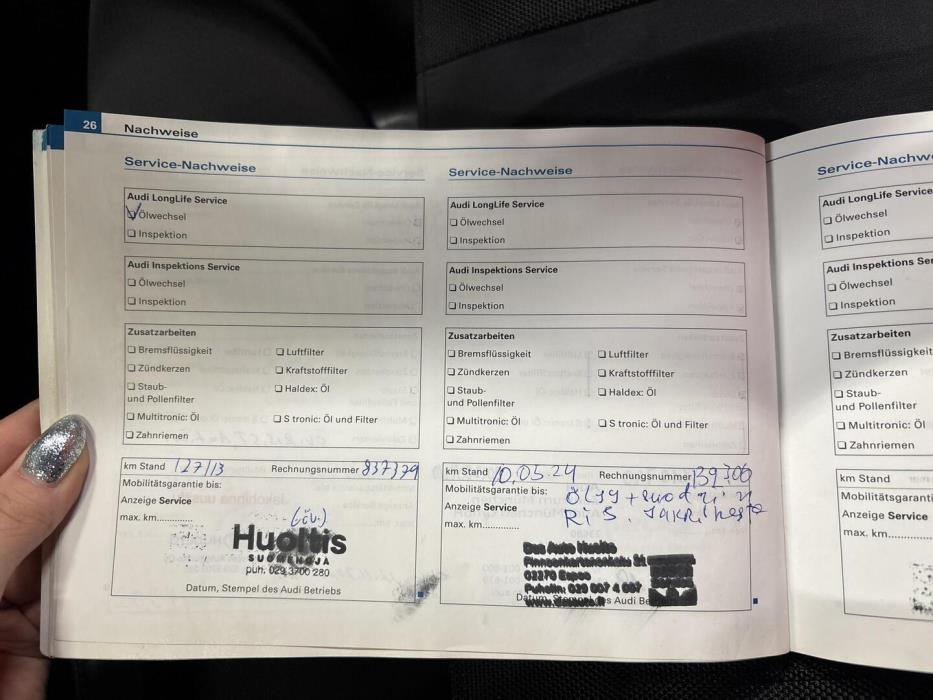 26 Nachweise
Service-Nachweise
Audi LongLife Service
Ölwechsel
Inspektion
Audi Inspektions Service
Ölwechsel
Inspektion
Zusatzarbeiten
Bremsflüssigkeit Luftfilter
Zündkerzen Kraftstofffilter
Staub- Haldex: Öl
und Pollenfilter
Multitronic: Öl S tronic: Öl und Filter
Zahnriemen
km Stand 127/13 Rechnungsnummer 837379
Mobilitätsgarantie bis:
Anzeige Service
max. km.............
Huoltis
SUOMENOJA
puh. 029 3700 280
Datum, Stempel des Audi Betriebs
Service-Nachweise
Audi LongLife Service
Ölwechsel
Inspektion
Audi Inspektions Service
Ölwechsel
Inspektion
Zusatzarbeiten
Bremsflüssigkeit Luftfilter
Zündkerzen Kraftstofffilter
Staub- Haldex: Öl
und Pollenfilter
Multitronic: Öl S tronic: Öl und Filter
Zahnriemen
km Stand 10.05.24 Rechnungsnummer 139706
Mobilitätsgarantie bis: Öljy +
Anzeige Service
max. km.............
02270 Espoo
Datum, Stempel des Audi Be
Service-Nachw
Audi LongLife Service
Ölwechsel
Inspektion
Audi Inspektions Ser
Ölwechsel
Inspektion
Zusatzarbeiten
Bremsflüssigkeit
Zündkerzen
Staub-
und Pollenfilter
Multitronic: Öl
Zahnriemen
km Stand
Mobilitätsgaranti
Anzeige Service
max. km.............